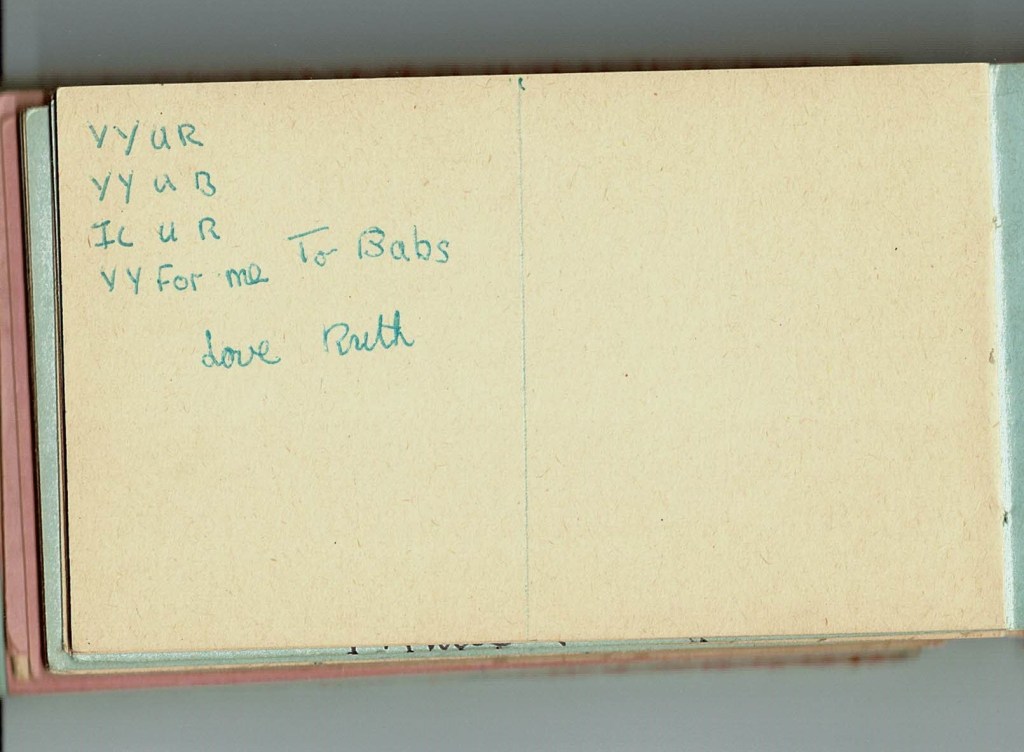 YYUR
YY U B
IC U R
YY For me
To Babs
Love Ruth